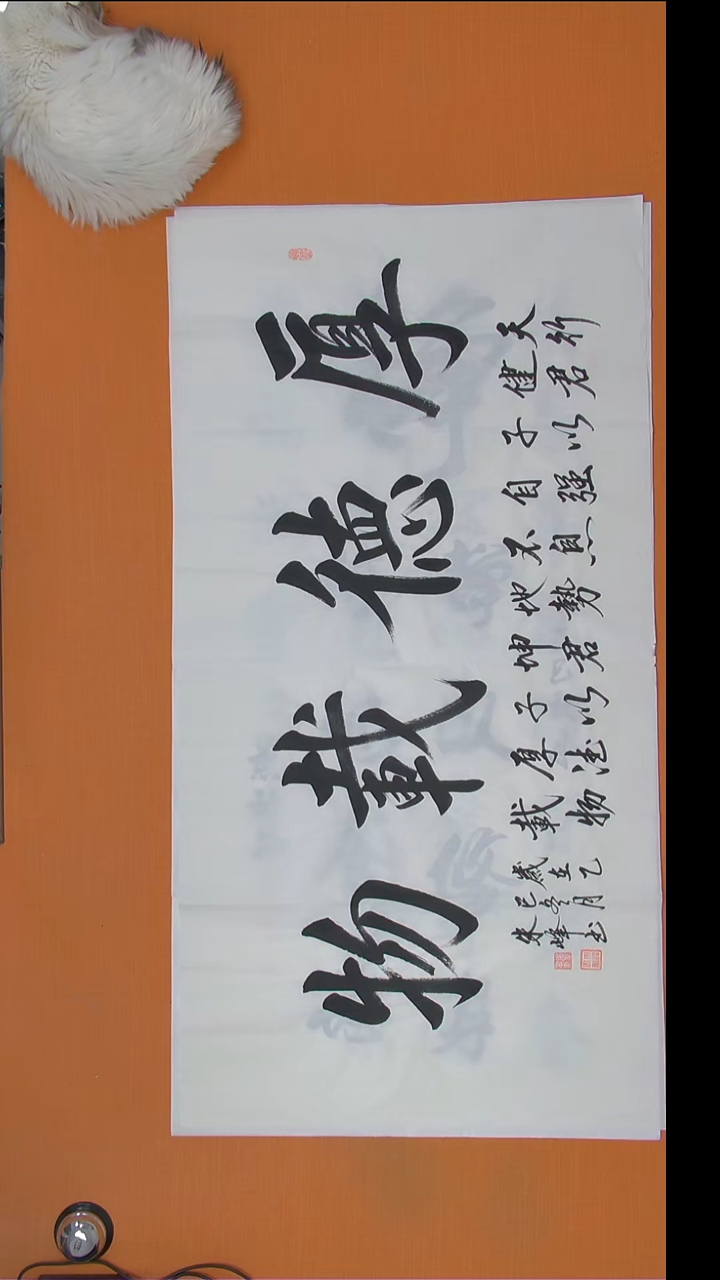 厚德載物
天行
健君
子以
自强
不息
地勢
坤君
子以
厚德
載物
歲在乙
巳冬月
朱峰书